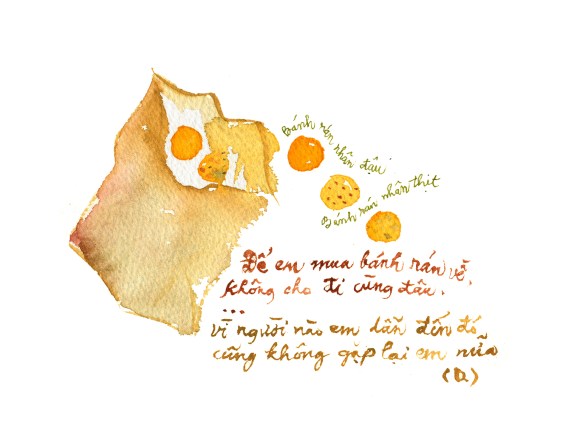 Bánh rán nhân đậu
Bánh rán nhân thịt
Để em mua bánh rán về,
không cho đi cùng đâu.
...
vì người nào em dẫn đến đó
cũng không gặp lại em nữa
(D.)